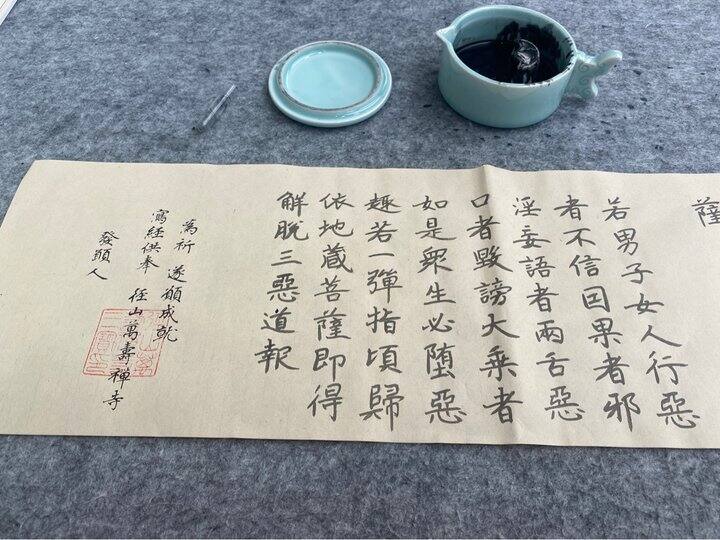 薩
若男子女人行惡
者不信因果者邪
淫妄語者兩舌惡
口者毀謗大乗者
如是衆生必堕惡
趣若一彈指頃歸
依地蔵菩薩即得
解脱三惡道報
為祈 遂願成就
寫經供奉 径山萬壽禪寺
發願人